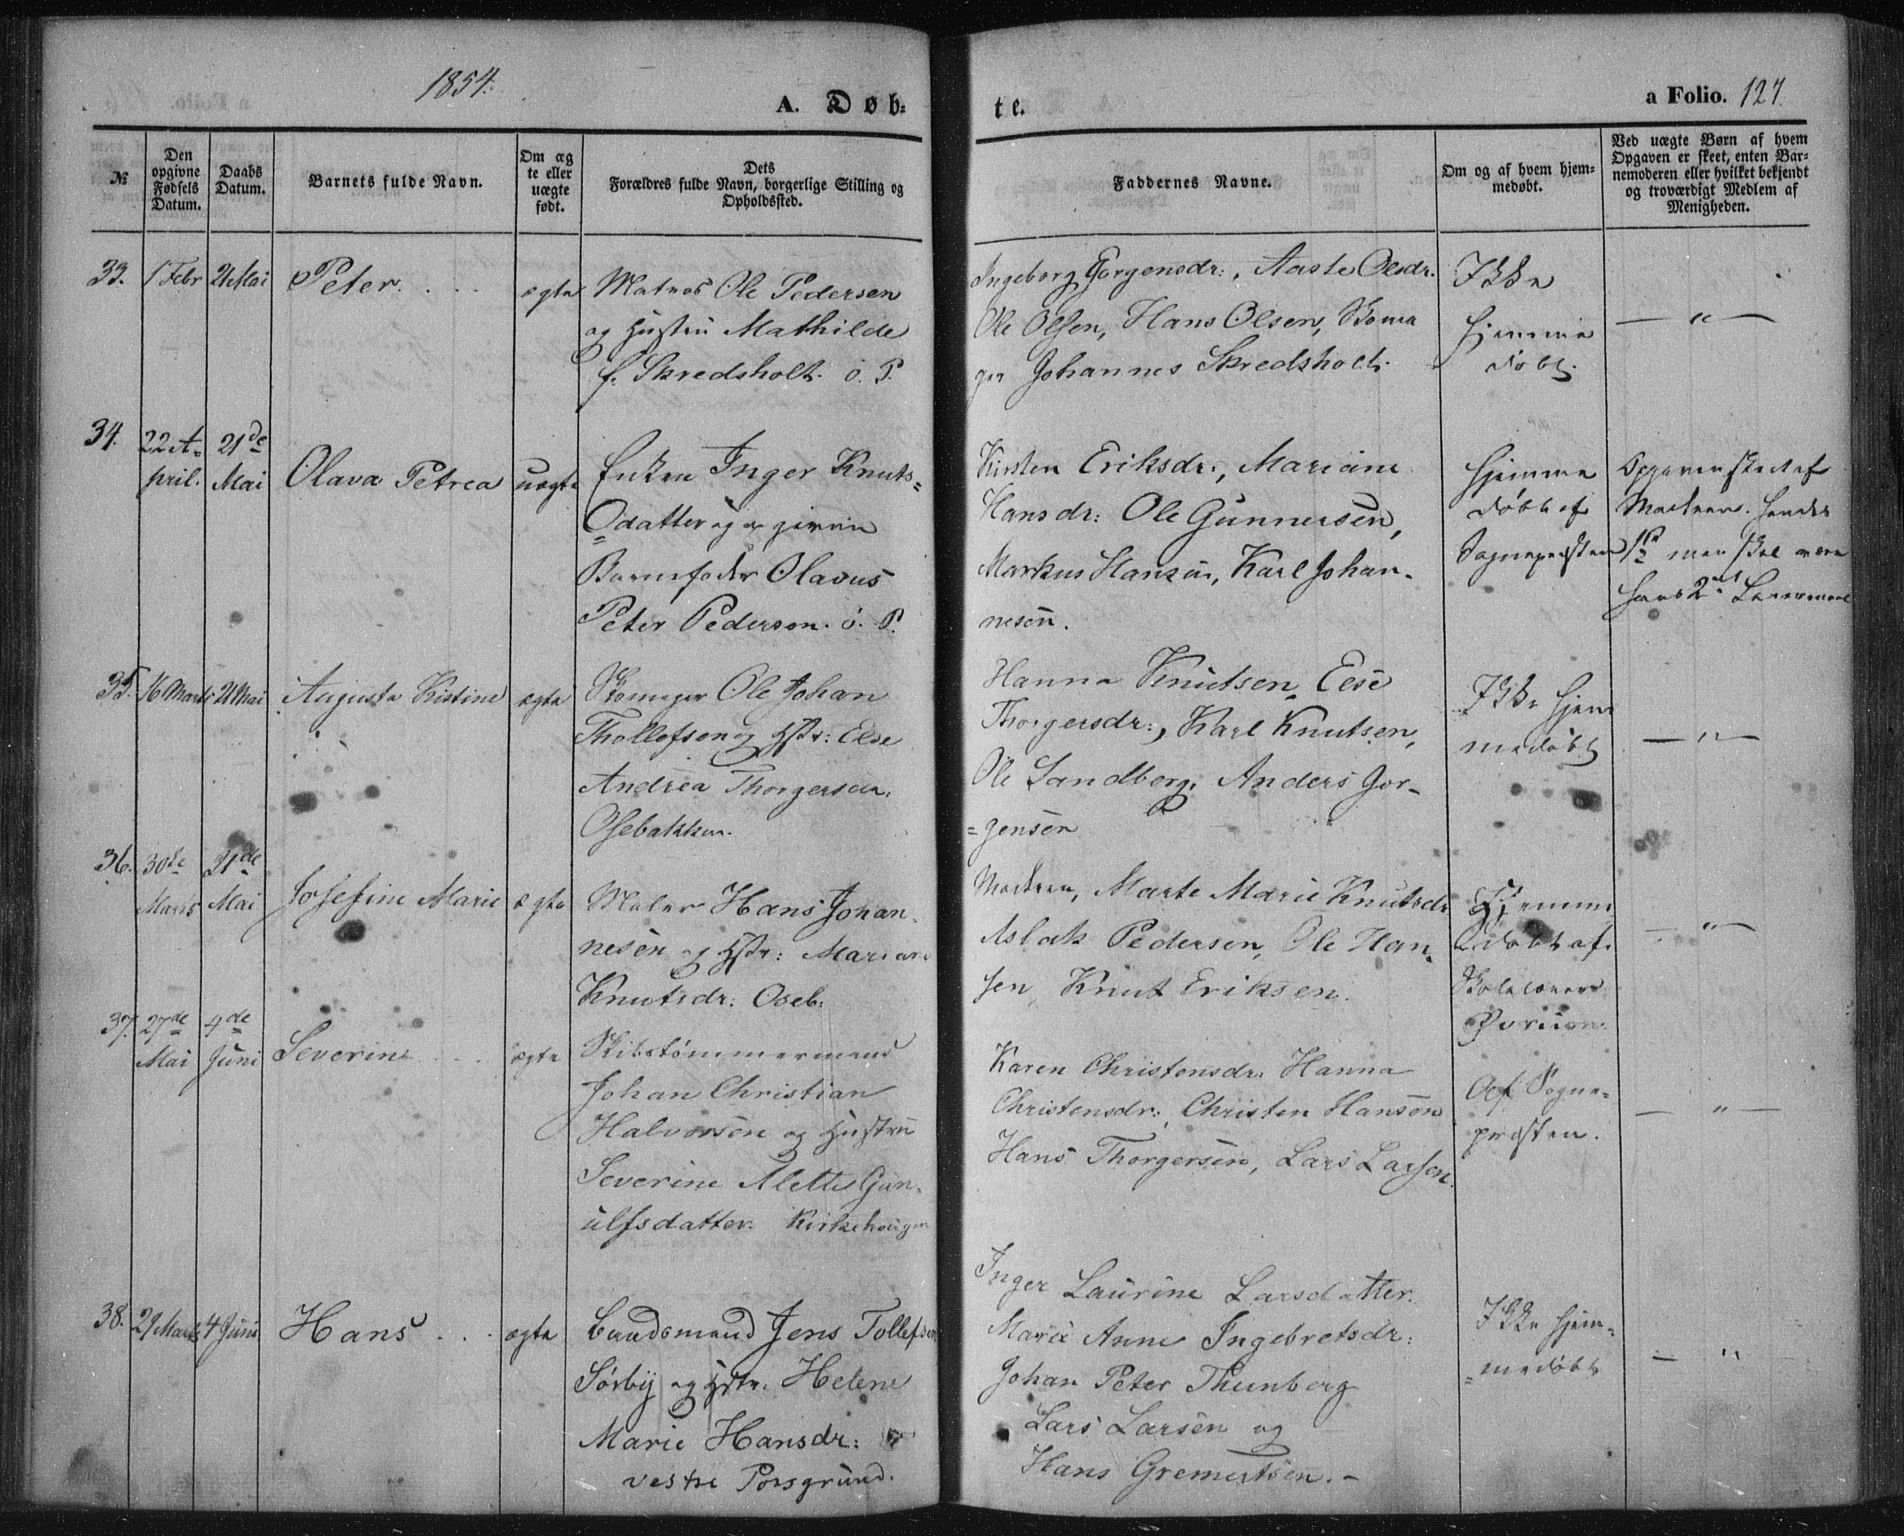 1854.
A. Døb-
te.
a Folio. 127
№
Den opgivne Fødsels Datum.
Daabs Datum.
Barnets fulde Navn.
Om ægte eller uægte født.
Dets Forældres fulde Navn, borgerlige Stilling og Opholdssted.
Faddernes Navne.
Om og af hvem hjemmedøbt.
Ved uægte Børn af hvem Opgaven er skeet, enten Barnemoderen eller hvilket bekjendt og troværdigt Medlem af Menigheden.
33. 1 Febr 21 Mai Peter. ægte
Matros Ole Pedersen
og Hustru Mathilde
f. Skredsholt. ö. P.
Ingeborg Jorgensdr:, Aaste Olsdr.
Ole Olsen, Hans Olsen, Skoma
ger Johannes Skredsholt.
Ikke
hjemme
døbt.
— " —
34. 22 A-
pril.
21de
Mai
Olava Petrea uægte
Enken Inger Knuts=
=datter og angiven
Barnefader Olavus
Peter Pedersen. ö. P.
Kirsten Eriksdr., Mariane
Hansdr: Ole Gunnersen,
Markus Hansen, Karl Johan-
nesen.
hjemme
døbt af
Sognepresten
Opgaven skeet af
Moderen. Hendes
1ste men skal være
hans 2det Leiermaal
35. 16 Marts 21 Mai Augusta Kistine ægte
Skomager Ole Johan
Thollefsen og Hstr: Else
Andrea Thorgersdr.
Osebakken.
Hanna Knutsen, Else
Thorgersdr:, Karl Knutsen,
Ole Sandberg, Anders Jor-
=gensen
Ikke hjem
medøbt
— " —
36. 30te
Marts
21de
Mai
Josefine Marie ægte
Maler Hans Johan-
nesen og Hstr: Maren
Knutsdr: Oseb:
Moderen, Marte Marie Knutsdr
Aslak Pedersen, Ole Han-
sen, Knut Eriksen.
Hjemme
døbt af
Skolelærer
— " —
37. 27de
Mai
4de
Juni
Severine ægte
Skibstømmermand
Johan Christian
Halvorsen og Hustru
Severine Alette Gun-
ulfsdatter. Kirkehougen
Karen Christensdr. Hanna
Christensdr:, Christen Hansen
Hans Thorgersen, Lars Larsen.
Af Sogne-
presten.
— " —
38. 29 Marts 4 Juni Hans ægte
Gaardmand Jens Tollefsen
Sörby og Hstr. Helene
Marie Hansdr:
vestre Porsgrund.
Inger Laurine Larsdatter.
Marie Anne Ingebretsdr:
Johan Peter Thunberg
Lars Larsen og
Hans Gremertsen. -
Ikke hjem-
=medøbt
— "